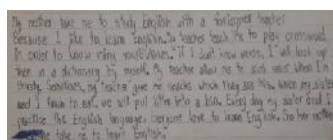 My mother take me to study English with a foreigner teacher
Because I like to learn English. My teacher teach me to play crossword
in order to know many vocabularies. If I don't know words, I will look up
them in a dictionary by myself. My teacher allow me to drink water when I'm
thirsty. Sometimes, my teacher give me snacks which they are. When my sister
and I finish to eat, we will put litter into a bin. Every day my sister and I
practise the English language. everyone love to learn English. So her mother
take to learn English.